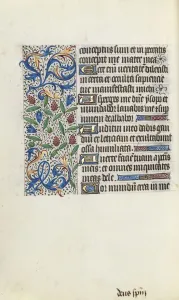 conceptus sum et in peccatis
concepit me mater mea
Ecce enim veritatem dilexisti
incerta et occulta sapientie
tue manifestasti michi
Asperges me domine ysopo et
mundabor lavabis me et super
nivem dealbabor
Auditui meo dabis gaudi
um et leticiam et exultabunt
ossa humiliata
Averte faciem tuam a pecca
tis meis et omnes iniquitates
meas dele
Cor mundum crea in me
deus spiritum